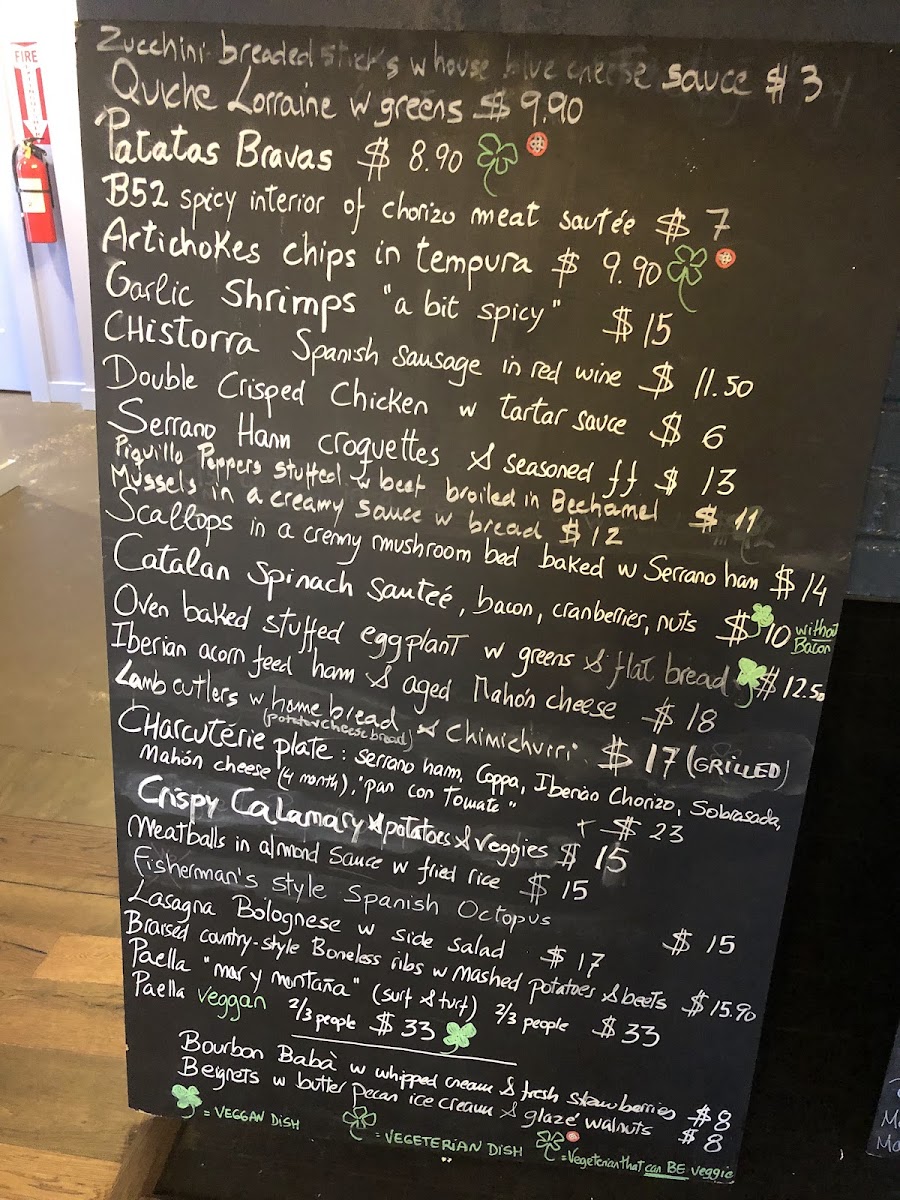 FIRE
Zucchini breaded sticks w house blue cheese sauce $ 3
Quiche Lorraine w greens $ 9.90
Patatas Bravas $ 8.90
B52 spicy interior of chorizo meat sautée $ 7
Artichokes chips in tempura $ 9.90
Garlic Shrimps "a bit spicy" $ 15
CHistorra Spanish sausage in red wine $ 11.50
Double Crisped Chicken w tartar sauce $ 6
Serrano Ham croquettes & seasoned ff $ 13
Piquillo Peppers stuffed w beef broiled in Bechamel $ 11
Mussels in a creamy sauce w bread $ 12
Scallops in a cremy mushroom bed baked w Serrano ham $ 14
Catalan Spinach Sauteé, bacon, cranberries, nuts $ 10 without Bacon
Oven baked stuffed eggplant w greens & flat bread $ 12.50
Iberian acorn feed ham & aged Mahón cheese $ 18
Lamb cutlers w home bread & Chimichurri $ 17 (GRILLED)
(potato cheese bread)
CHarcutérie plate: serrano ham, Coppa, Iberian Chorizo, Sobrasada,
Mahón cheese (4 month), "pan con tomate" $ 23
Crispy Calamary & potatoes & veggies $ 15
Meatballs in almond Sauce w fried rice $ 15
Fisherman's style Spanish Octopus $ 15
Lasagna Bolognese w side salad $ 17
Braised country-style Boneless ribs w mashed potatoes & beets $ 15.90
Paella "mar y montaña" (surf & turf) 2/3 people $ 33
Paella veggan 2/3 people $ 33
Bourbon Babà w whipped cream & fresh strawberries $ 8
Beignets w butter pecan ice cream & glazé walnuts $ 8
= VEGGAN DISH
= VEGETERIAN DISH
= Vegeterian that can BE veggie